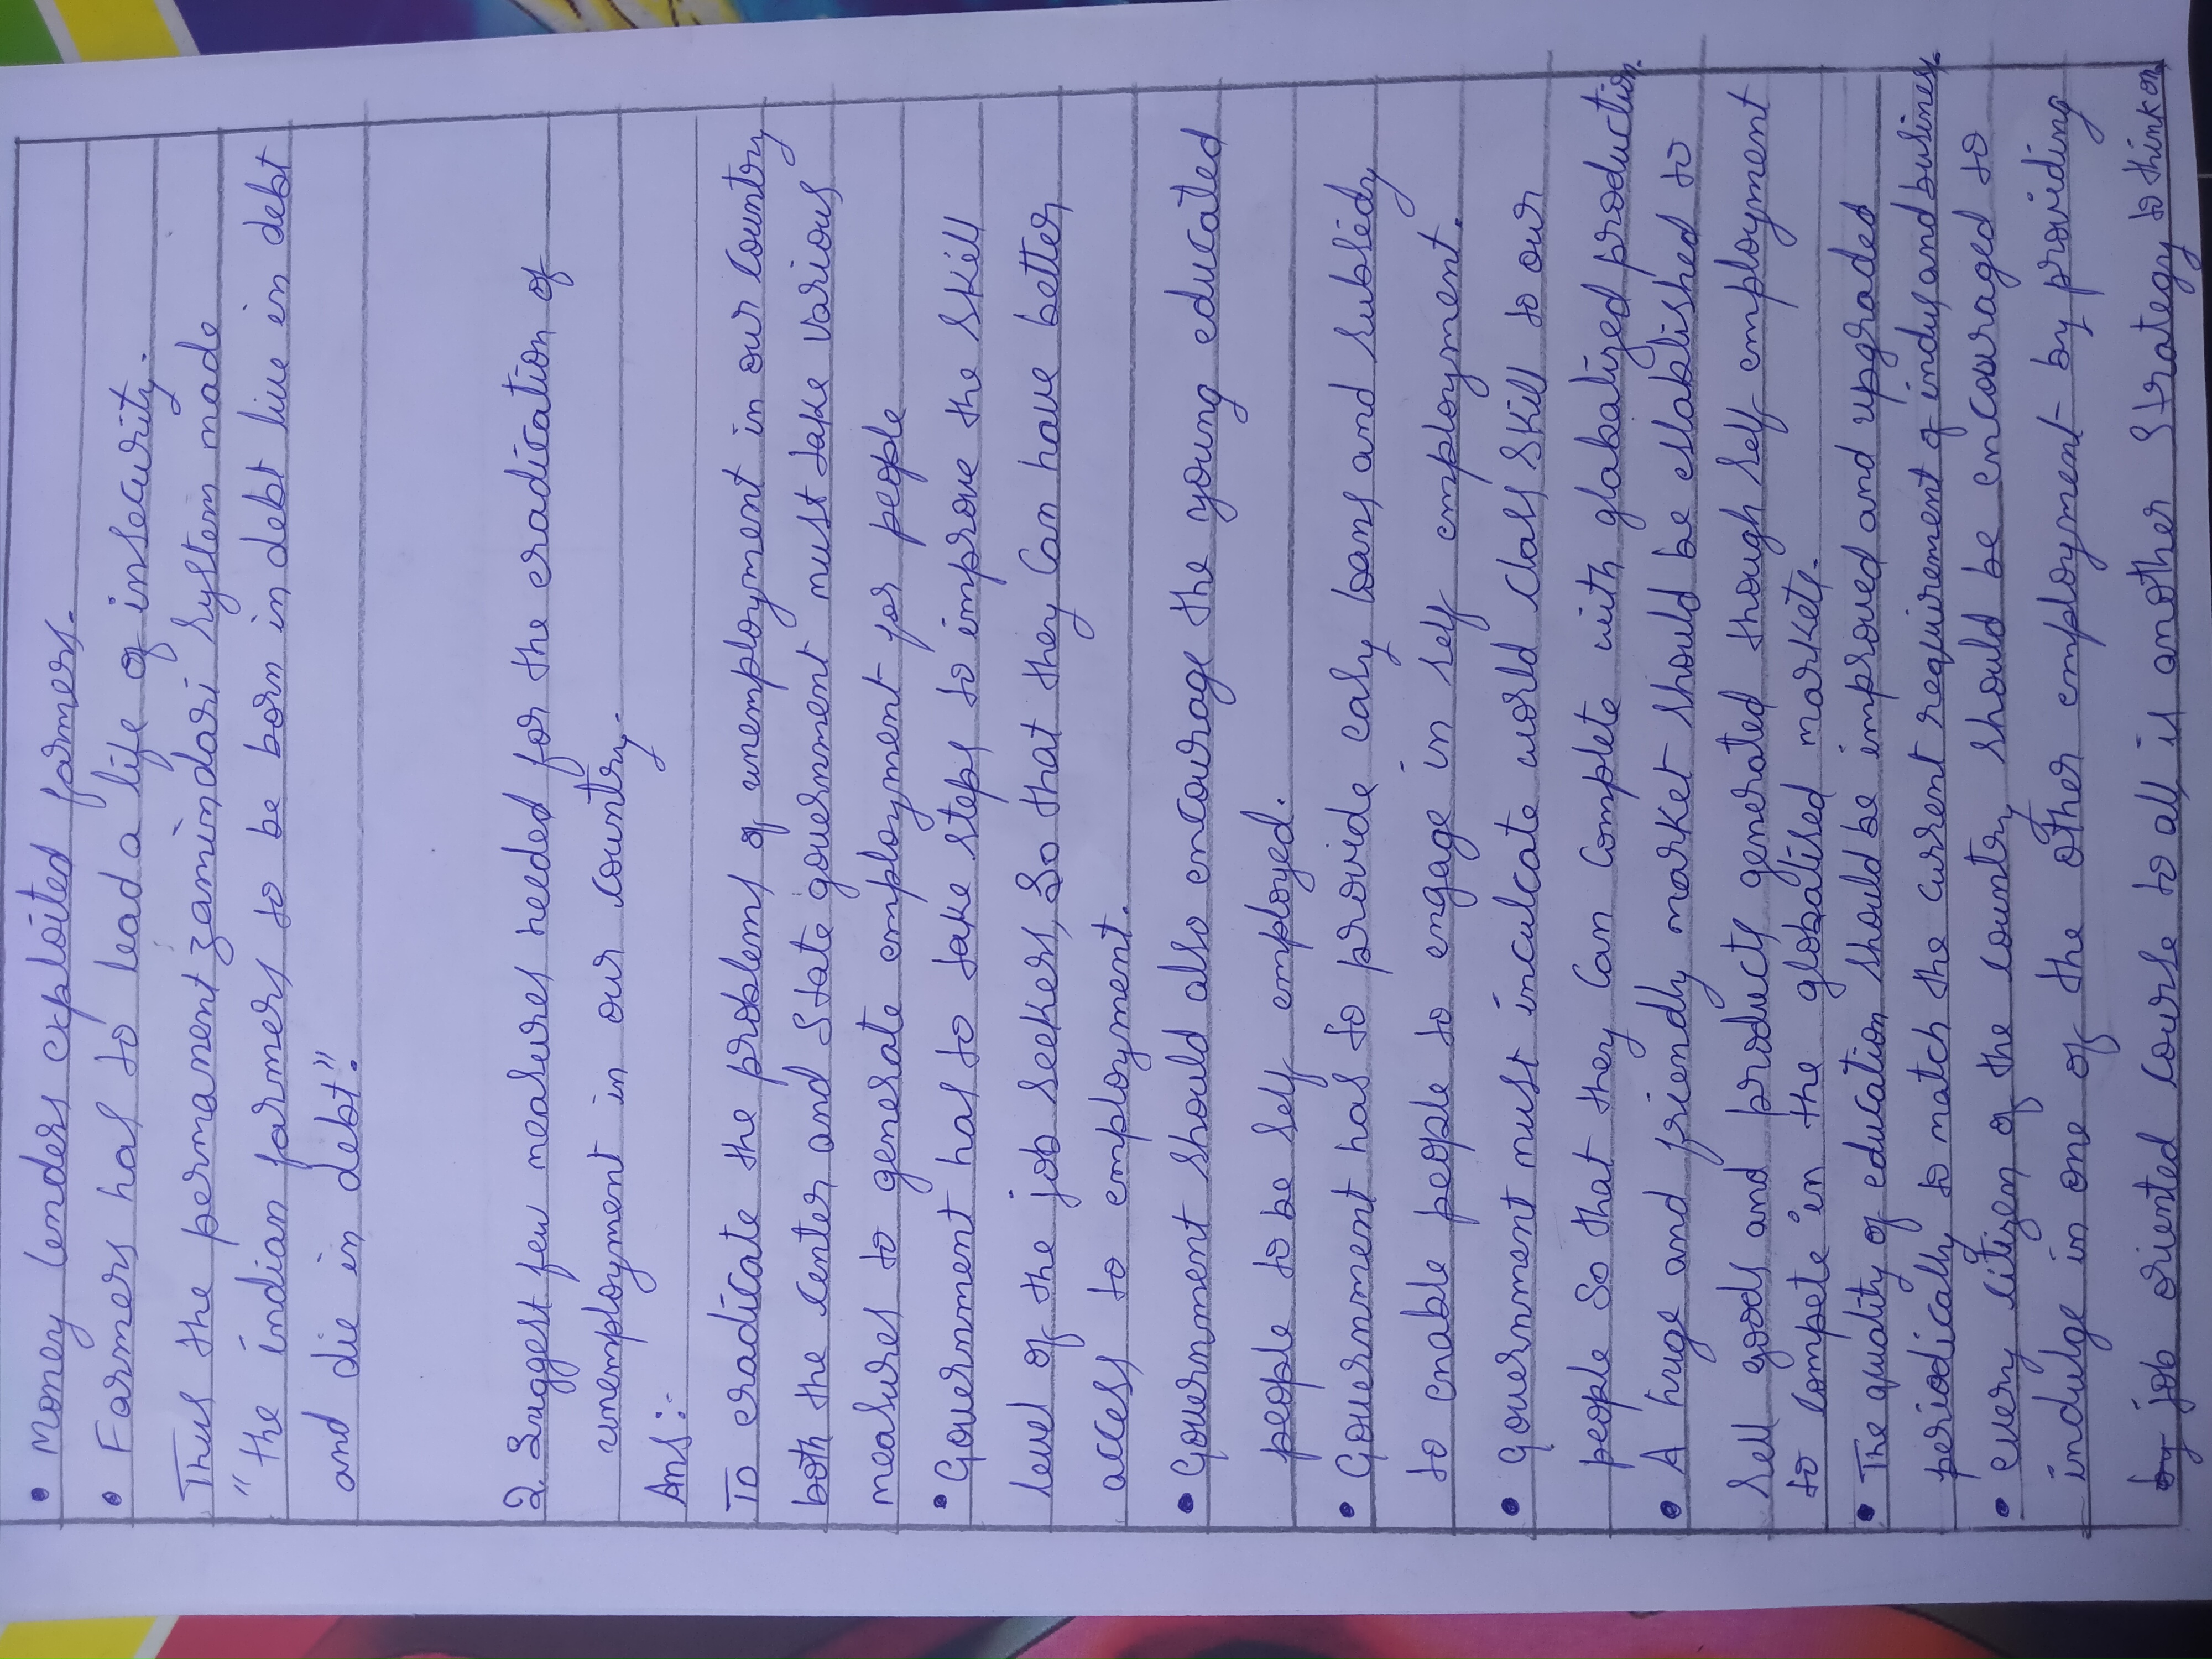 • Money lenders exploited farmers.
• Farmers has to lead a life of insecurity.
Thus the permanent zamindari system made
"the indian farmers to be born in debt live in debt
and die in debt".
2. Suggest few measures needed for the eradication of
unemployment in our country.
Ans:-
To eradicate the problems of unemployment in our country
both the center and State government must take various
measures to generate employment for people
• Government has to take steps to improve the skill
level of the job seekers, So that they can have better
access to employment.
• Government should also encourage the young educated
people to be self employed.
• Government has to provide easy loans and subsidy
to enable people to engage in self employment.
• Government must inculcate world class skill to our
people so that they can complete with globalized production.
• A huge and friendly market should be established to
sell goods and products generated though self employment
to compete in the globalised markets.
• The quality of education should be improved and upgraded
periodically to match the current requirement of indus and business.
• every citizen of the country should be encouraged to
indulge in one of the other employment by providing
by job oriented course to all is another strategy to think on